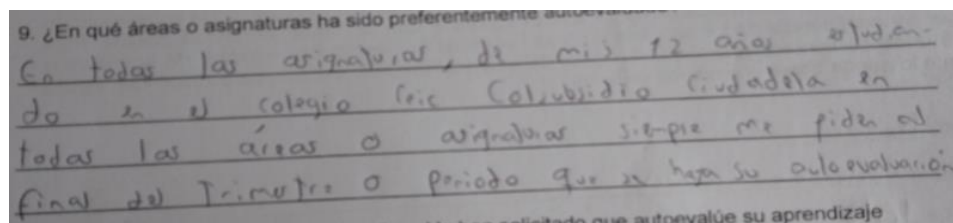 9. ¿En qué áreas o asignaturas ha sido preferentemente
En todas las asignaturas, de mis 12 años estudian-
do en el colegio Ceic Colsubsidio Ciudadela en
todas las áreas o asignaturas siempre me piden al
final del Trimestre o periodo que se haga su autoevaluación
que autoevalúe su aprendizaje